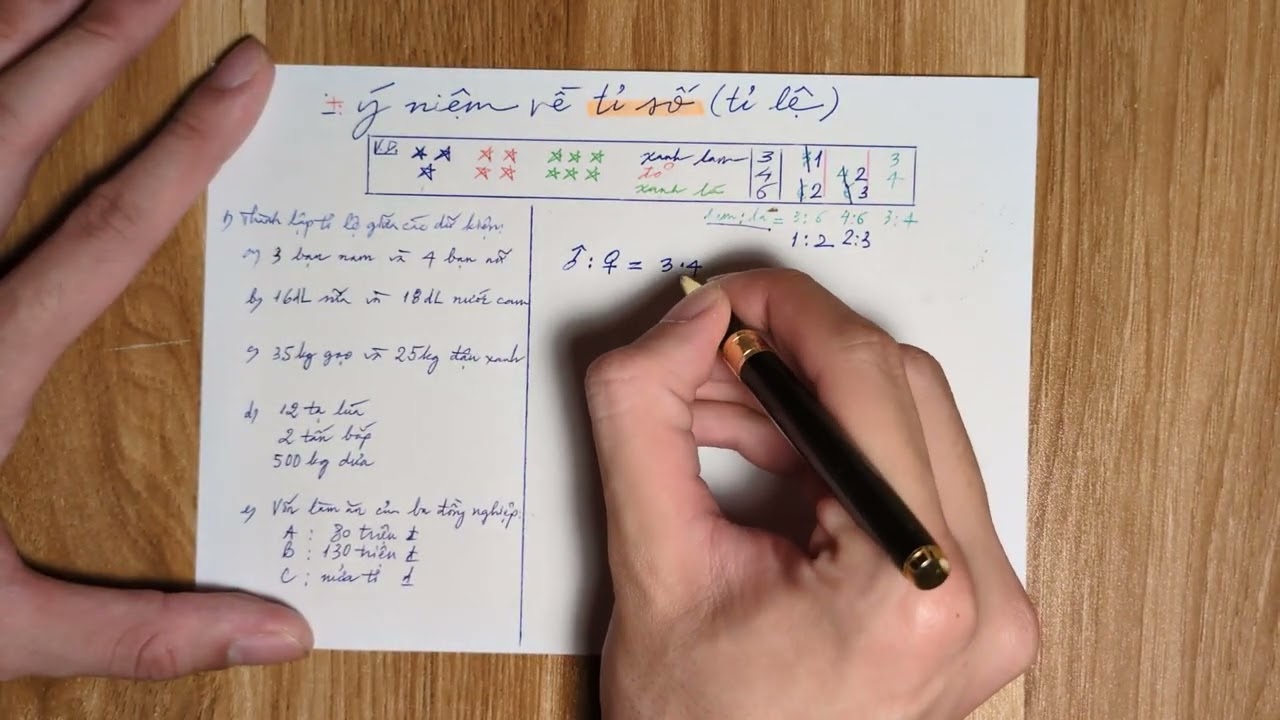 I. Ý niệm về tỉ số (tỉ lệ)
V.D. xanh lam 3 1 3
đỏ 4 4 2 4
xanh lá 6 2 3
lam : lá = 3:6 4:6 3:4
1:2 2:3
1) Thành lập tỉ lệ giữa các dữ kiện:
a) 3 bạn nam và 4 bạn nữ
♂ : ♀ = 3:4
b) 16dL sữa và 18dL nước cam
c) 35kg gạo và 25kg đậu xanh
d) 12 tạ lúa
2 tấn bắp
500 kg dưa
e) Vốn làm ăn của ba đồng nghiệp:
A : 80 triệu đ
B : 130 triệu đ
C : nửa tỉ đ